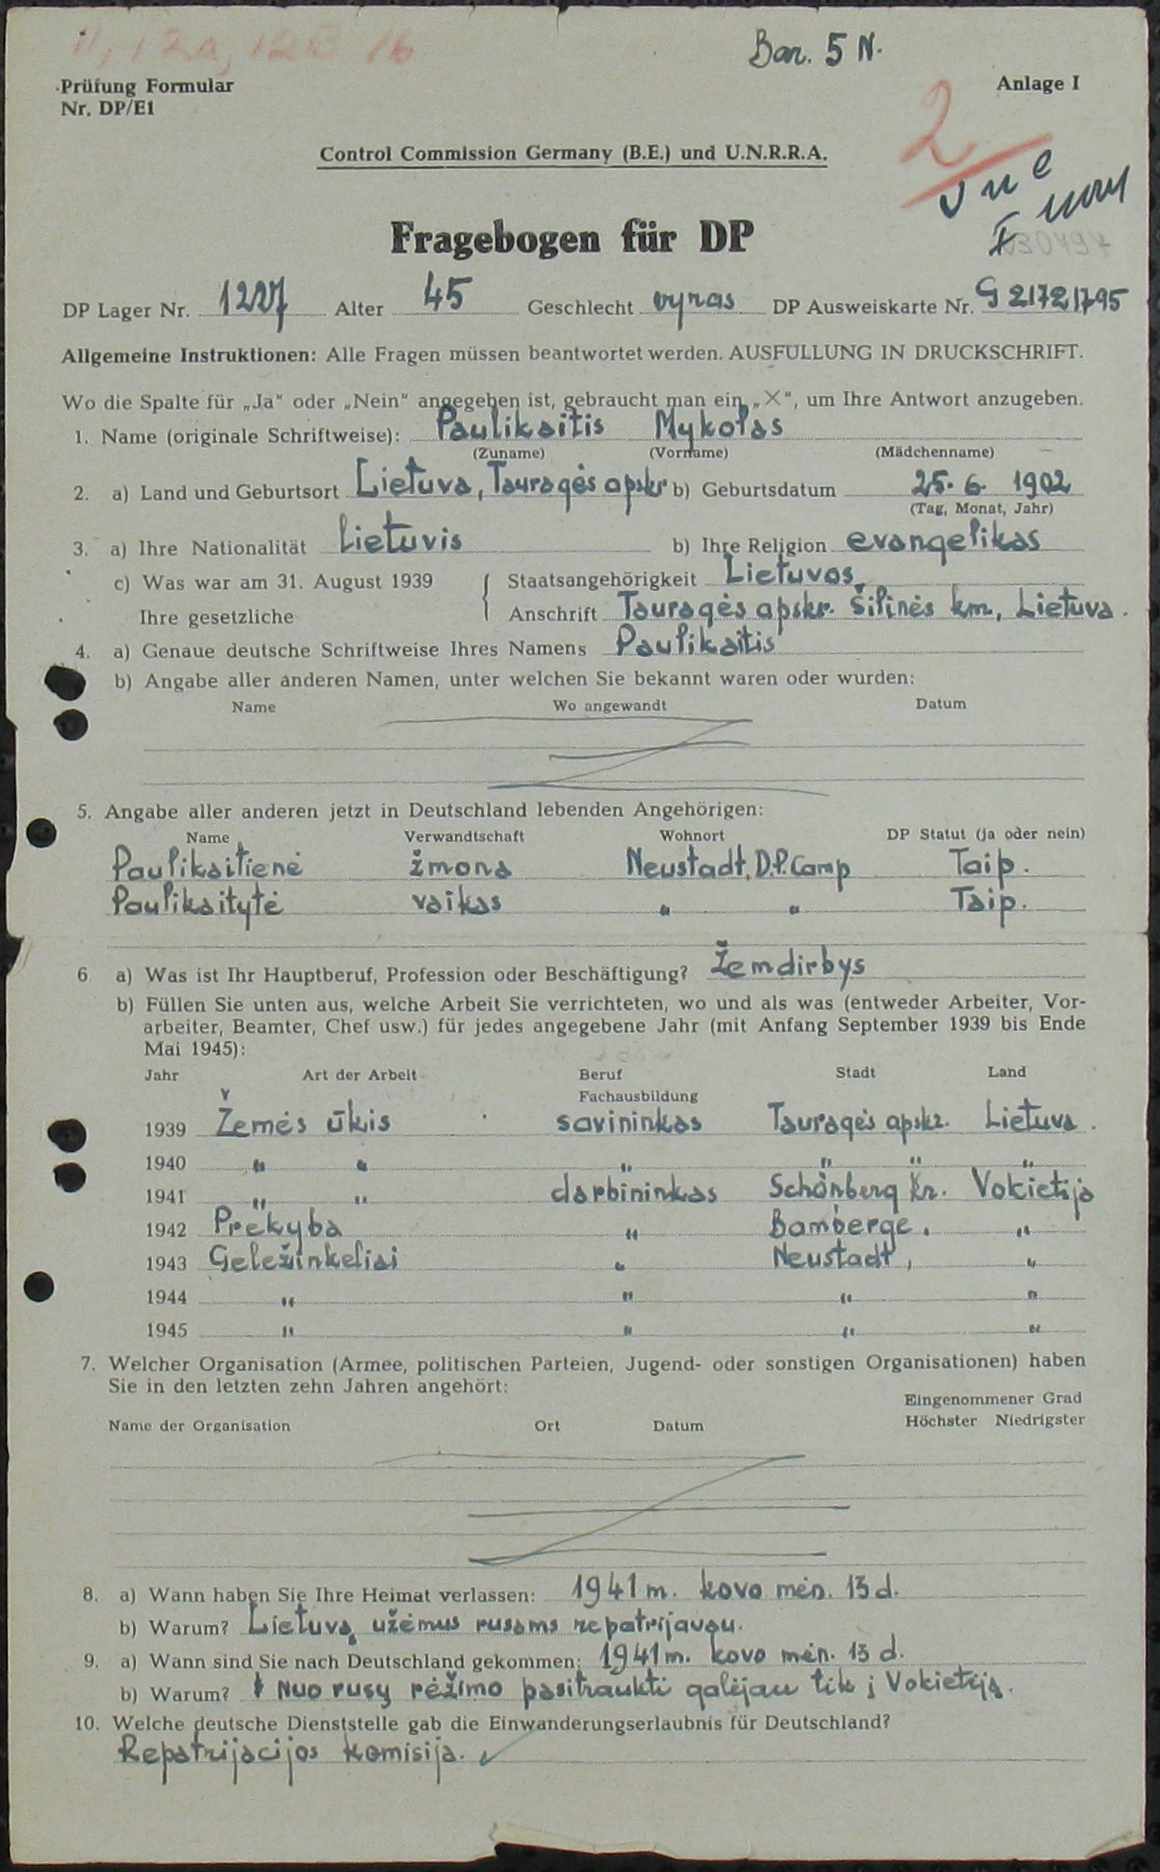 11, 12a, 12B 16
Bar. 5 N.
Prüfung Formular
Nr. DP/E1
Anlage I
2
Control Commission Germany (B.E.) und U.N.R.R.A.
Fragebogen für DP
DP Lager Nr. 1227 Alter 45 Geschlecht vyras DP Ausweiskarte Nr. G 21721795
Allgemeine Instruktionen: Alle Fragen müssen beantwortet werden. AUSFÜLLUNG IN DRUCKSCHRIFT.
Wo die Spalte für „Ja“ oder „Nein“ angegeben ist, gebraucht man ein „X“, um Ihre Antwort anzugeben.
1. Name (originale Schriftweise): Paulikaitis Mykolas
(Zuname) (Vorname) (Mädchenname)
2. a) Land und Geburtsort Lietuva, Tauragės apskr b) Geburtsdatum 25. 6. 1902
(Tag, Monat, Jahr)
3. a) Ihre Nationalität Lietuvis b) Ihre Religion evangelikas
c) Was war am 31. August 1939 Staatsangehörigkeit Lietuvos,
Ihre gesetzliche Anschrift Tauragės apskr. Šilinės km, Lietuva.
4. a) Genaue deutsche Schriftweise Ihres Namens Paulikaitis
b) Angabe aller anderen Namen, unter welchen Sie bekannt waren oder wurden:
Name Wo angewandt Datum
5. Angabe aller anderen jetzt in Deutschland lebenden Angehörigen:
Name Verwandtschaft Wohnort DP Statut (ja oder nein)
Paulikaitienė žmona Neustadt, D.P. Camp Taip.
Paulikaitytė vaikas " " Taip.
6 a) Was ist Ihr Hauptberuf, Profession oder Beschäftigung? Žemdirbys
b) Füllen Sie unten aus, welche Arbeit Sie verrichteten, wo und als was (entweder Arbeiter, Vor-
arbeiter, Beamter, Chef usw.) für jedes angegebene Jahr (mit Anfang September 1939 bis Ende
Mai 1945):
Jahr Art der Arbeit Beruf Stadt Land
Fachausbildung
1939 Žemės ūkis savininkas Tauragės apskr. Lietuva.
1940 " " " " " "
1941 " " darbininkas Schönberg Kr. Vokietija
1942 Prekyba " Bamberge. "
1943 Geležinkeliai " Neustadt, "
1944 " " " "
1945 " " " "
7. Welcher Organisation (Armee, politischen Parteien, Jugend- oder sonstigen Organisationen) haben
Sie in den letzten zehn Jahren angehört:
Eingenommener Grad
Name der Organisation Ort Datum Höchster Niedrigster
8. a) Wann haben Sie Ihre Heimat verlassen: 1941 m. kovo mėn. 13 d.
b) Warum? Lietuvą užėmus rusams repatrijavau.
9. a) Wann sind Sie nach Deutschland gekommen: 1941 m. kovo mėn. 13 d.
b) Warum? Nuo rusų rėžimo pasitraukti galėjau tik į Vokietiją.
10. Welche deutsche Dienststelle gab die Einwanderungserlaubnis für Deutschland?
Repatrijacijos komisija.